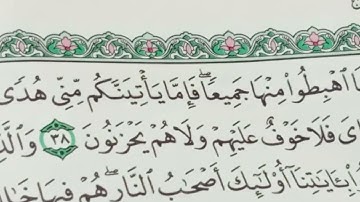 ا ٱهۡبِطُواْ مِنۡهَا جَمِيعٗاۖ فَإِمَّا يَأۡتِيَنَّكُم مِّنِّي هُدٗى
اىَ فَلَا خَوۡفٌ عَلَيۡهِمۡ وَلَا هُمۡ يَحۡزَنُونَ ٣٨ وَٱلَّذ
بِـَٔايَٰتِنَآ أُوْلَٰٓئِكَ أَصۡحَٰبُ ٱلنَّارِۖ هُمۡ فِيهَا خَا